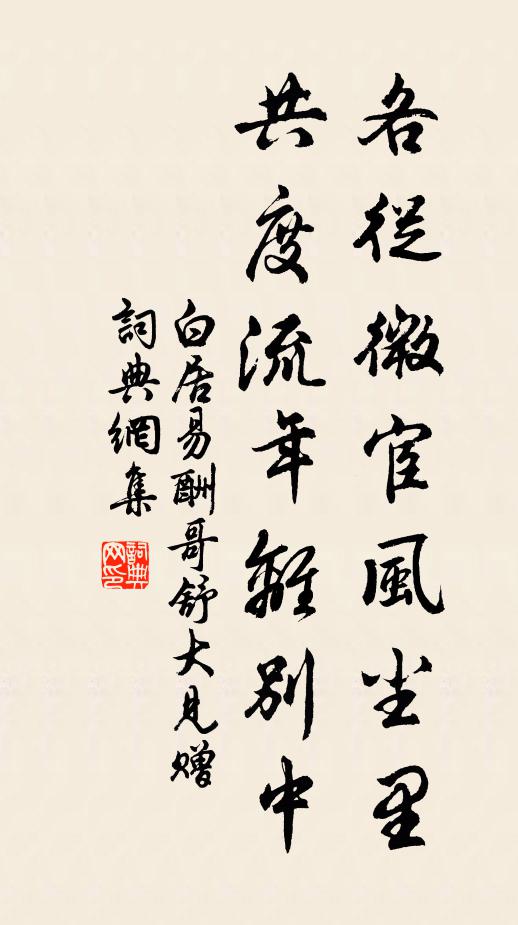 各從微宦風尘里
共度流年離別中
白居易酬哥舒大見贈
詞典網集
詞典網印